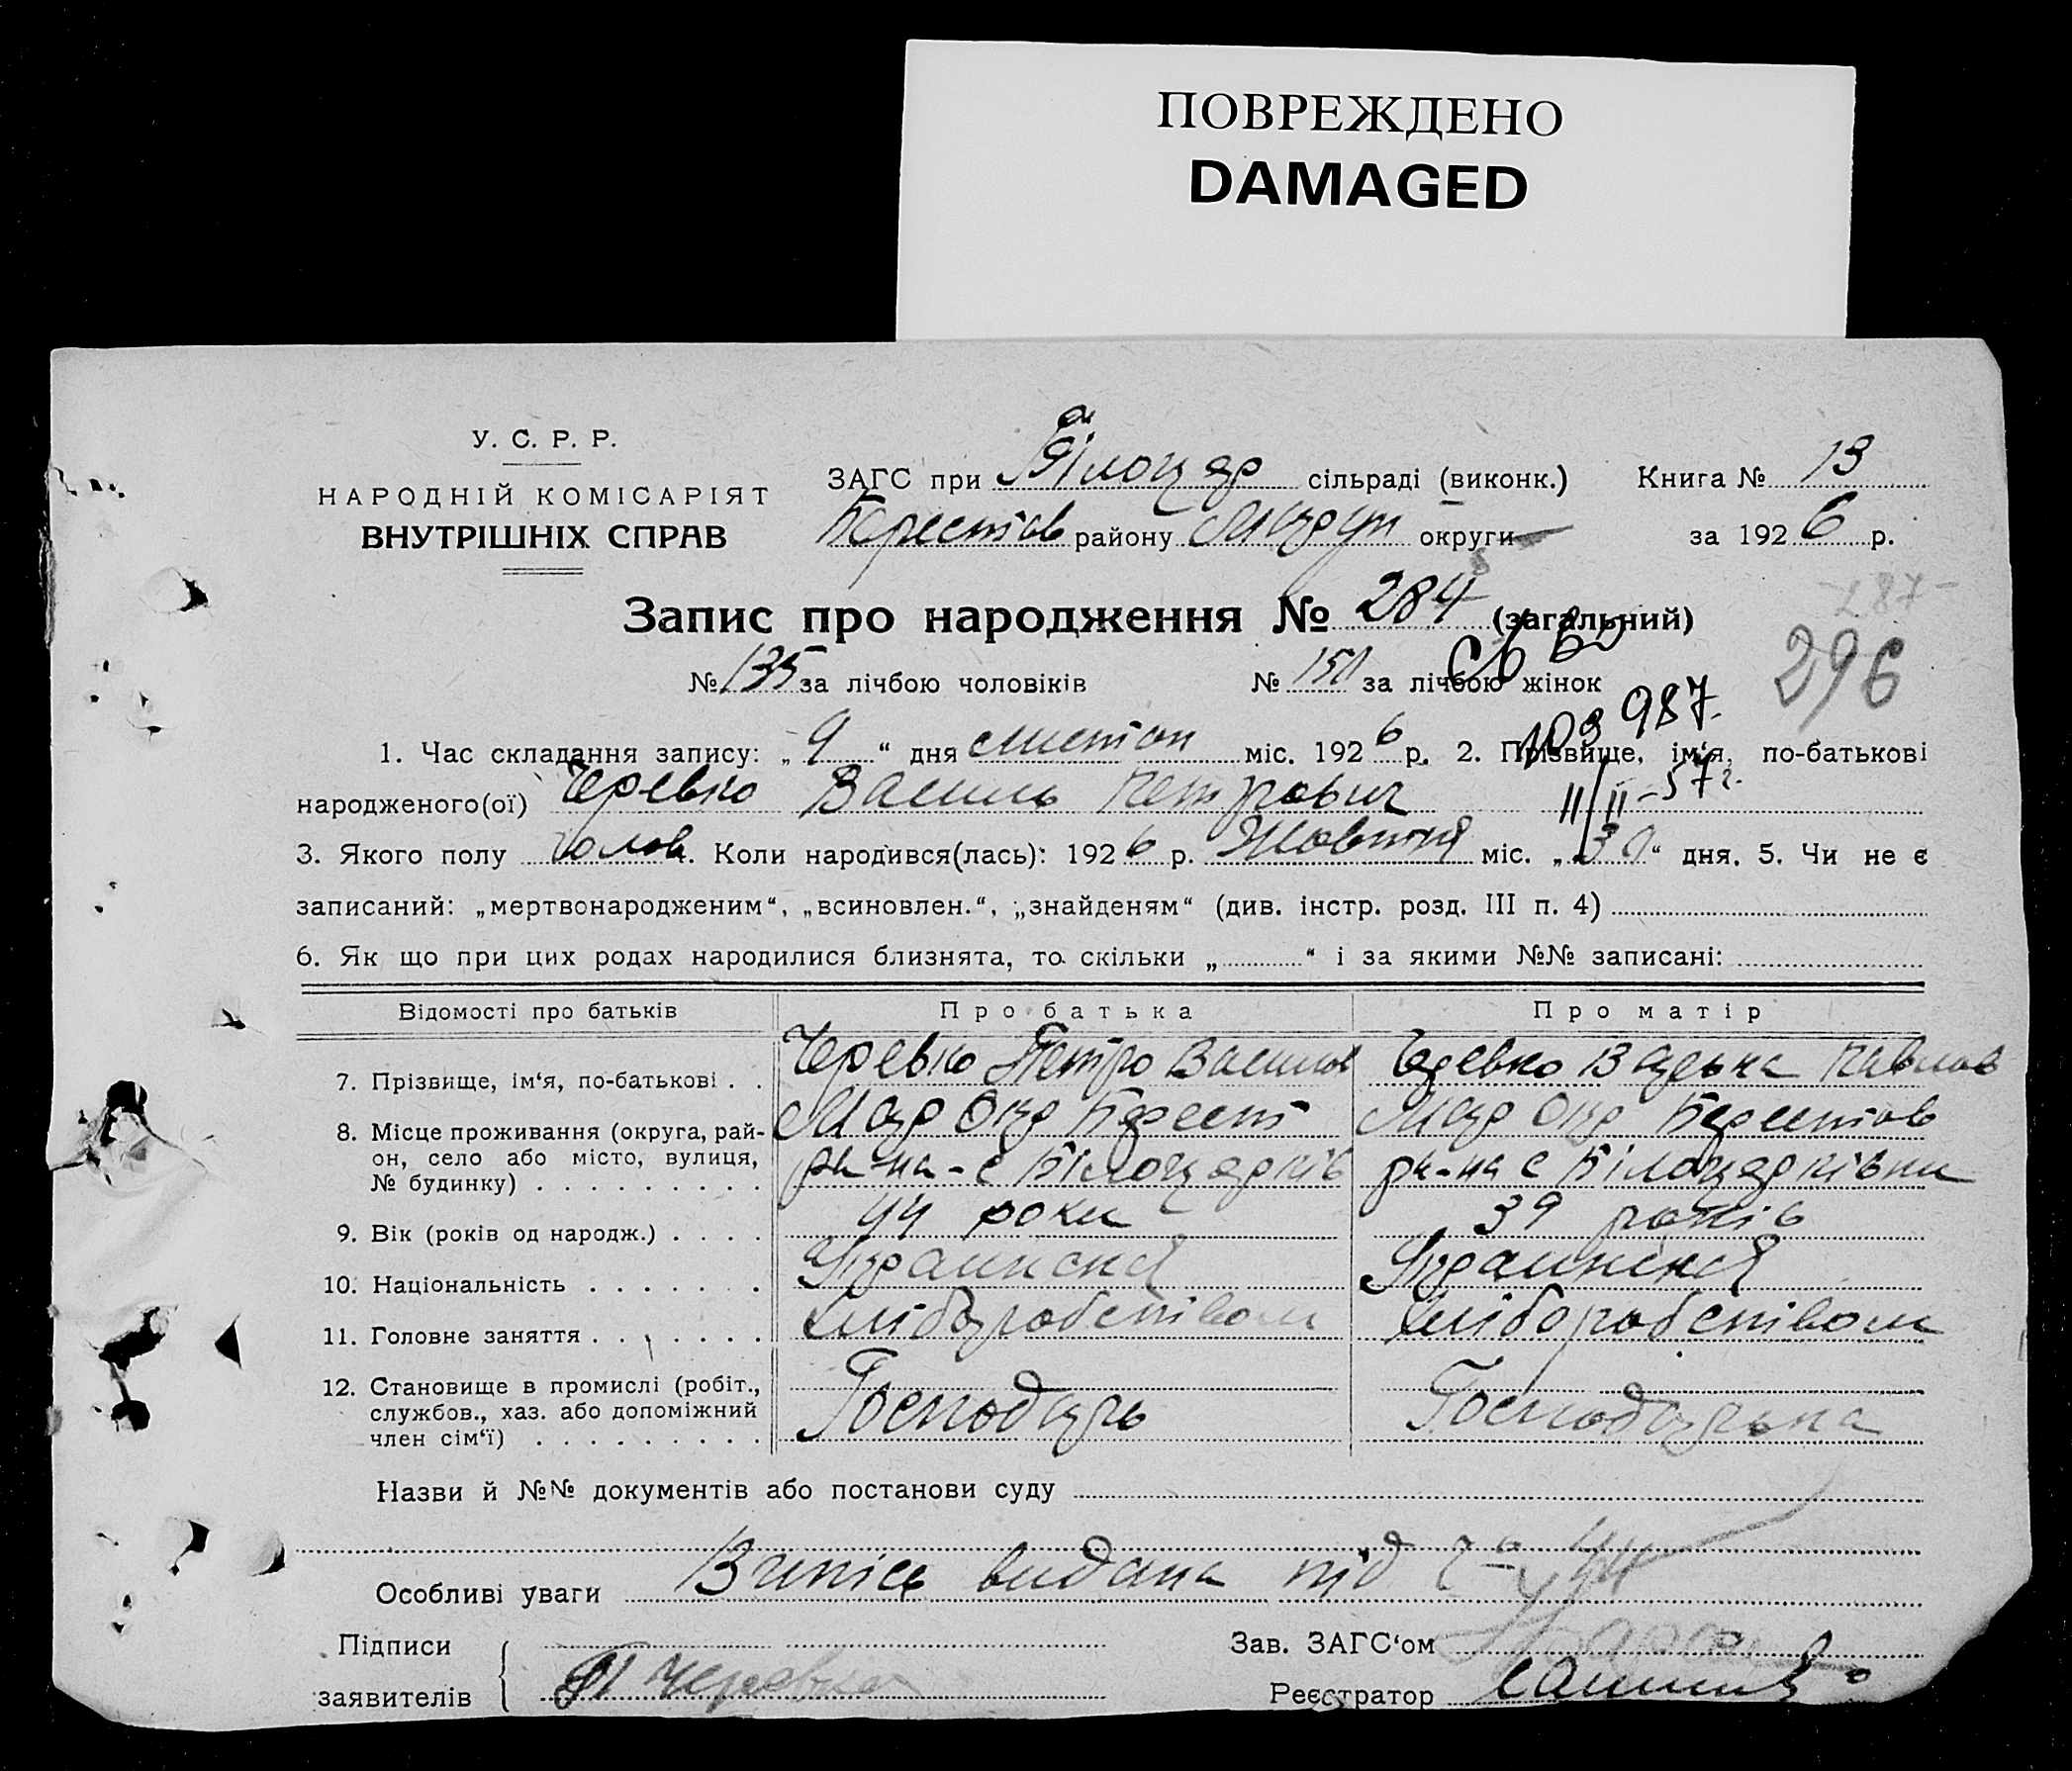 ПОВРЕЖДЕНО
DAMAGED
У. С. Р. Р.
НАРОДНІЙ КОМІСАРІЯТ
ВНУТРІШНІХ СПРАВ
ЗАГС при Білоцер сільраді (виконк.) Книга № 13
Берестов району округи за 1926 р.
Запис про народження № 284 (загальний)
-287-
296
№ 135 за лічбою чоловіків № 150 за лічбою жінок
987
1. Час складання запису: „9“ дня листоп міс. 1926 р. 2. Прізвище, ім‘я, по-батькові
народженого(ої) Черевко Василь Петрович
II/II-57 г.
3. Якого полу чолов. Коли народився(лась): 1926 р. Жовтня міс. „30“ дня. 5. Чи не є
записаний: „мертвонародженим“, „всиновлен.“, „знайденям“ (див. інстр. розд. III п. 4)
6. Як що при цих родах народилися близнята, то скільки „ “ і за якими №№ записані:
Відомості про батьків Про батька Про матір
7. Прізвище, ім‘я, по-батькові . . Черевко Петро Василов Черевко Павлов
8. Місце проживання (округа, район, село або місто, вулиця, № будинку) Мар Окр Берест ра-на - с Білоцерків Мар Окр Берестов ра-на с Білоцерківки
9. Вік (років од народж.) . . . . 44 роки 39 років
10. Національність . . . . . . . Украинска Украинска
11. Головне заняття . . . . . . . хліборобством хліборобством
12. Становище в промислі (робіт., службов., хаз. або допоміжний член сім‘ї) . . . . . . . . . Господарь Господарька
Назви й №№ документів або постанови суду
Особливі уваги Випісь видана під 44
Підписи Зав. ЗАГС‘ом
заявителів П Черевко Реєстратор